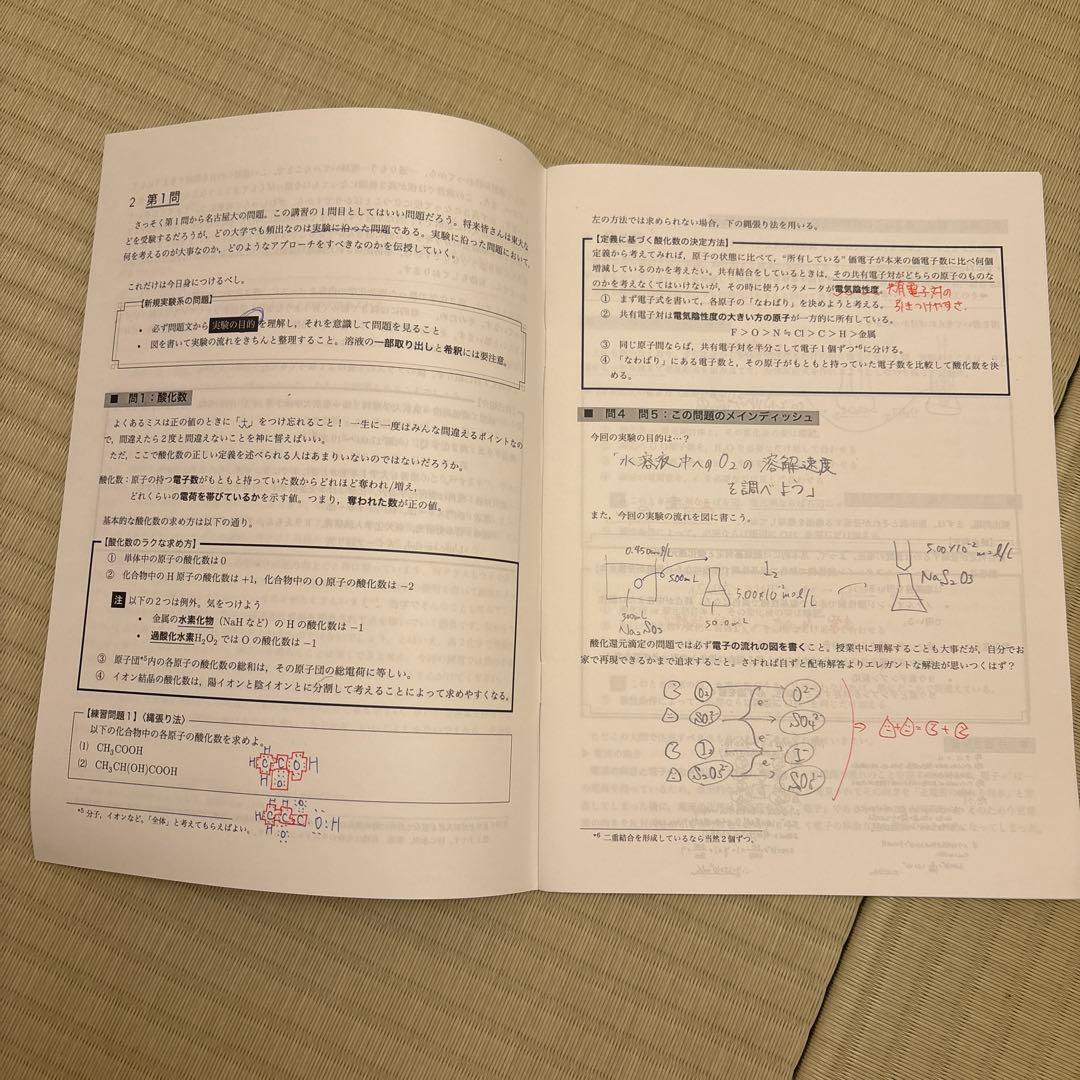 2 第1問
さっそく第1問から名古屋大の問題。この講習の1問目としてはいい問題だろう。将来皆さんは東大な
どを受験するだろうが、どの大学でも頻出なのは実験に沿った問題である。実験に沿った問題において、
何を考えるのが大事なのか、どのようなアプローチをすべきなのかを伝授していく。
これだけは今日身につけるべし。
【新規実験系の問題】
• 必ず問題文から実験の目的を理解し、それを意識して問題を見ること
• 図を書いて実験の流れをきちんと整理すること。溶液の一部取り出しと希釈には要注意。
■ 問1：酸化数
よくあるミスは正の値のときに「+」をつけ忘れること！ 一生に一度はみんな間違えるポイントなの
で、間違えたら2度と間違えないことを神に誓えばいい。
ただ、ここで酸化数の正しい定義を述べられる人はあまりいないのではないだろうか。
酸化数：原子の持つ電子数がもともと持っていた数からどれほど奪われ/増え、
どれくらいの電荷を帯びているかを示す値。つまり、奪われた数が正の値。
基本的な酸化数の求め方は以下の通り。
【酸化数のラクな求め方】
① 単体中の原子の酸化数は0
② 化合物中のH原子の酸化数は+1，化合物中のO原子の酸化数は−2
注 以下の2つは例外。気をつけよう
• 金属の水素化物（NaHなど）のHの酸化数は−1
• 過酸化水素H₂O₂ではOの酸化数は−1
③ 原子団*⁵内の各原子の酸化数の総和は、その原子団の総電荷に等しい。
④ イオン結晶の酸化数は、陽イオンと陰イオンとに分割して考えることによって求めやすくなる。
【練習問題1】〈縄張り法〉
以下の化合物中の各原子の酸化数を求めよ。
(1) CH₃COOH
(2) CH₃CH(OH)COOH
H
H C C O H
H O
H H O
H C C C O:H
H O
*⁵ 分子，イオンなど。「全体」と考えてもらえばよい。
左の方法では求められない場合，下の縄張り法を用いる。
【定義に基づく酸化数の決定方法】
定義から考えてみれば、原子の状態に比べて、“所有している”価電子が本来の価電子数に比べ何個
増減しているのかを考えたい。共有結合をしているときは、その共有電子対がどちらの原子のものな
のかを考えなくてはいけないが、その時に使うパラメータが電気陰性度。共有電子対の
引きつけやすさ.
① まず電子式を書いて、各原子の「なわばり」を決めようと考える。
② 共有電子対は電気陰性度の大きい方の原子が一方的に所有している。
F＞O＞N≒Cl＞C＞H＞金属
③ 同じ原子間ならば、共有電子対を半分こして電子1個ずつ*⁶に分ける。
④ 「なわばり」にある電子数と、その原子がもともと持っていた電子数を比較して酸化数を決
める。
■ 問4 問5：この問題のメインディッシュ
今回の実験の目的は…？
「水溶液中へのO₂の溶解速度
を調べよう」
また，今回の実験の流れを図に書こう。
5.00mL
5.00×10⁻² mol/L
5.00×10⁻² mol/L
NaS₂O₃
500mL
Na₂SO₃
50.0mL
酸化還元滴定の問題では必ず電子の流れの図を書くこと。授業中に理解することも大事だが，自分でお
家で再現できるかまで追求すること。さすれば自ずと配布解答よりエレガントな解法が思いつくはず？
O₂ e⁻ O²⁻
SO₃²⁻ SO₄²⁻
I₂ e⁻ I⁻
S₂O₃²⁻ e⁻
*⁶ 二重結合を形成しているなら当然2個ずつ。